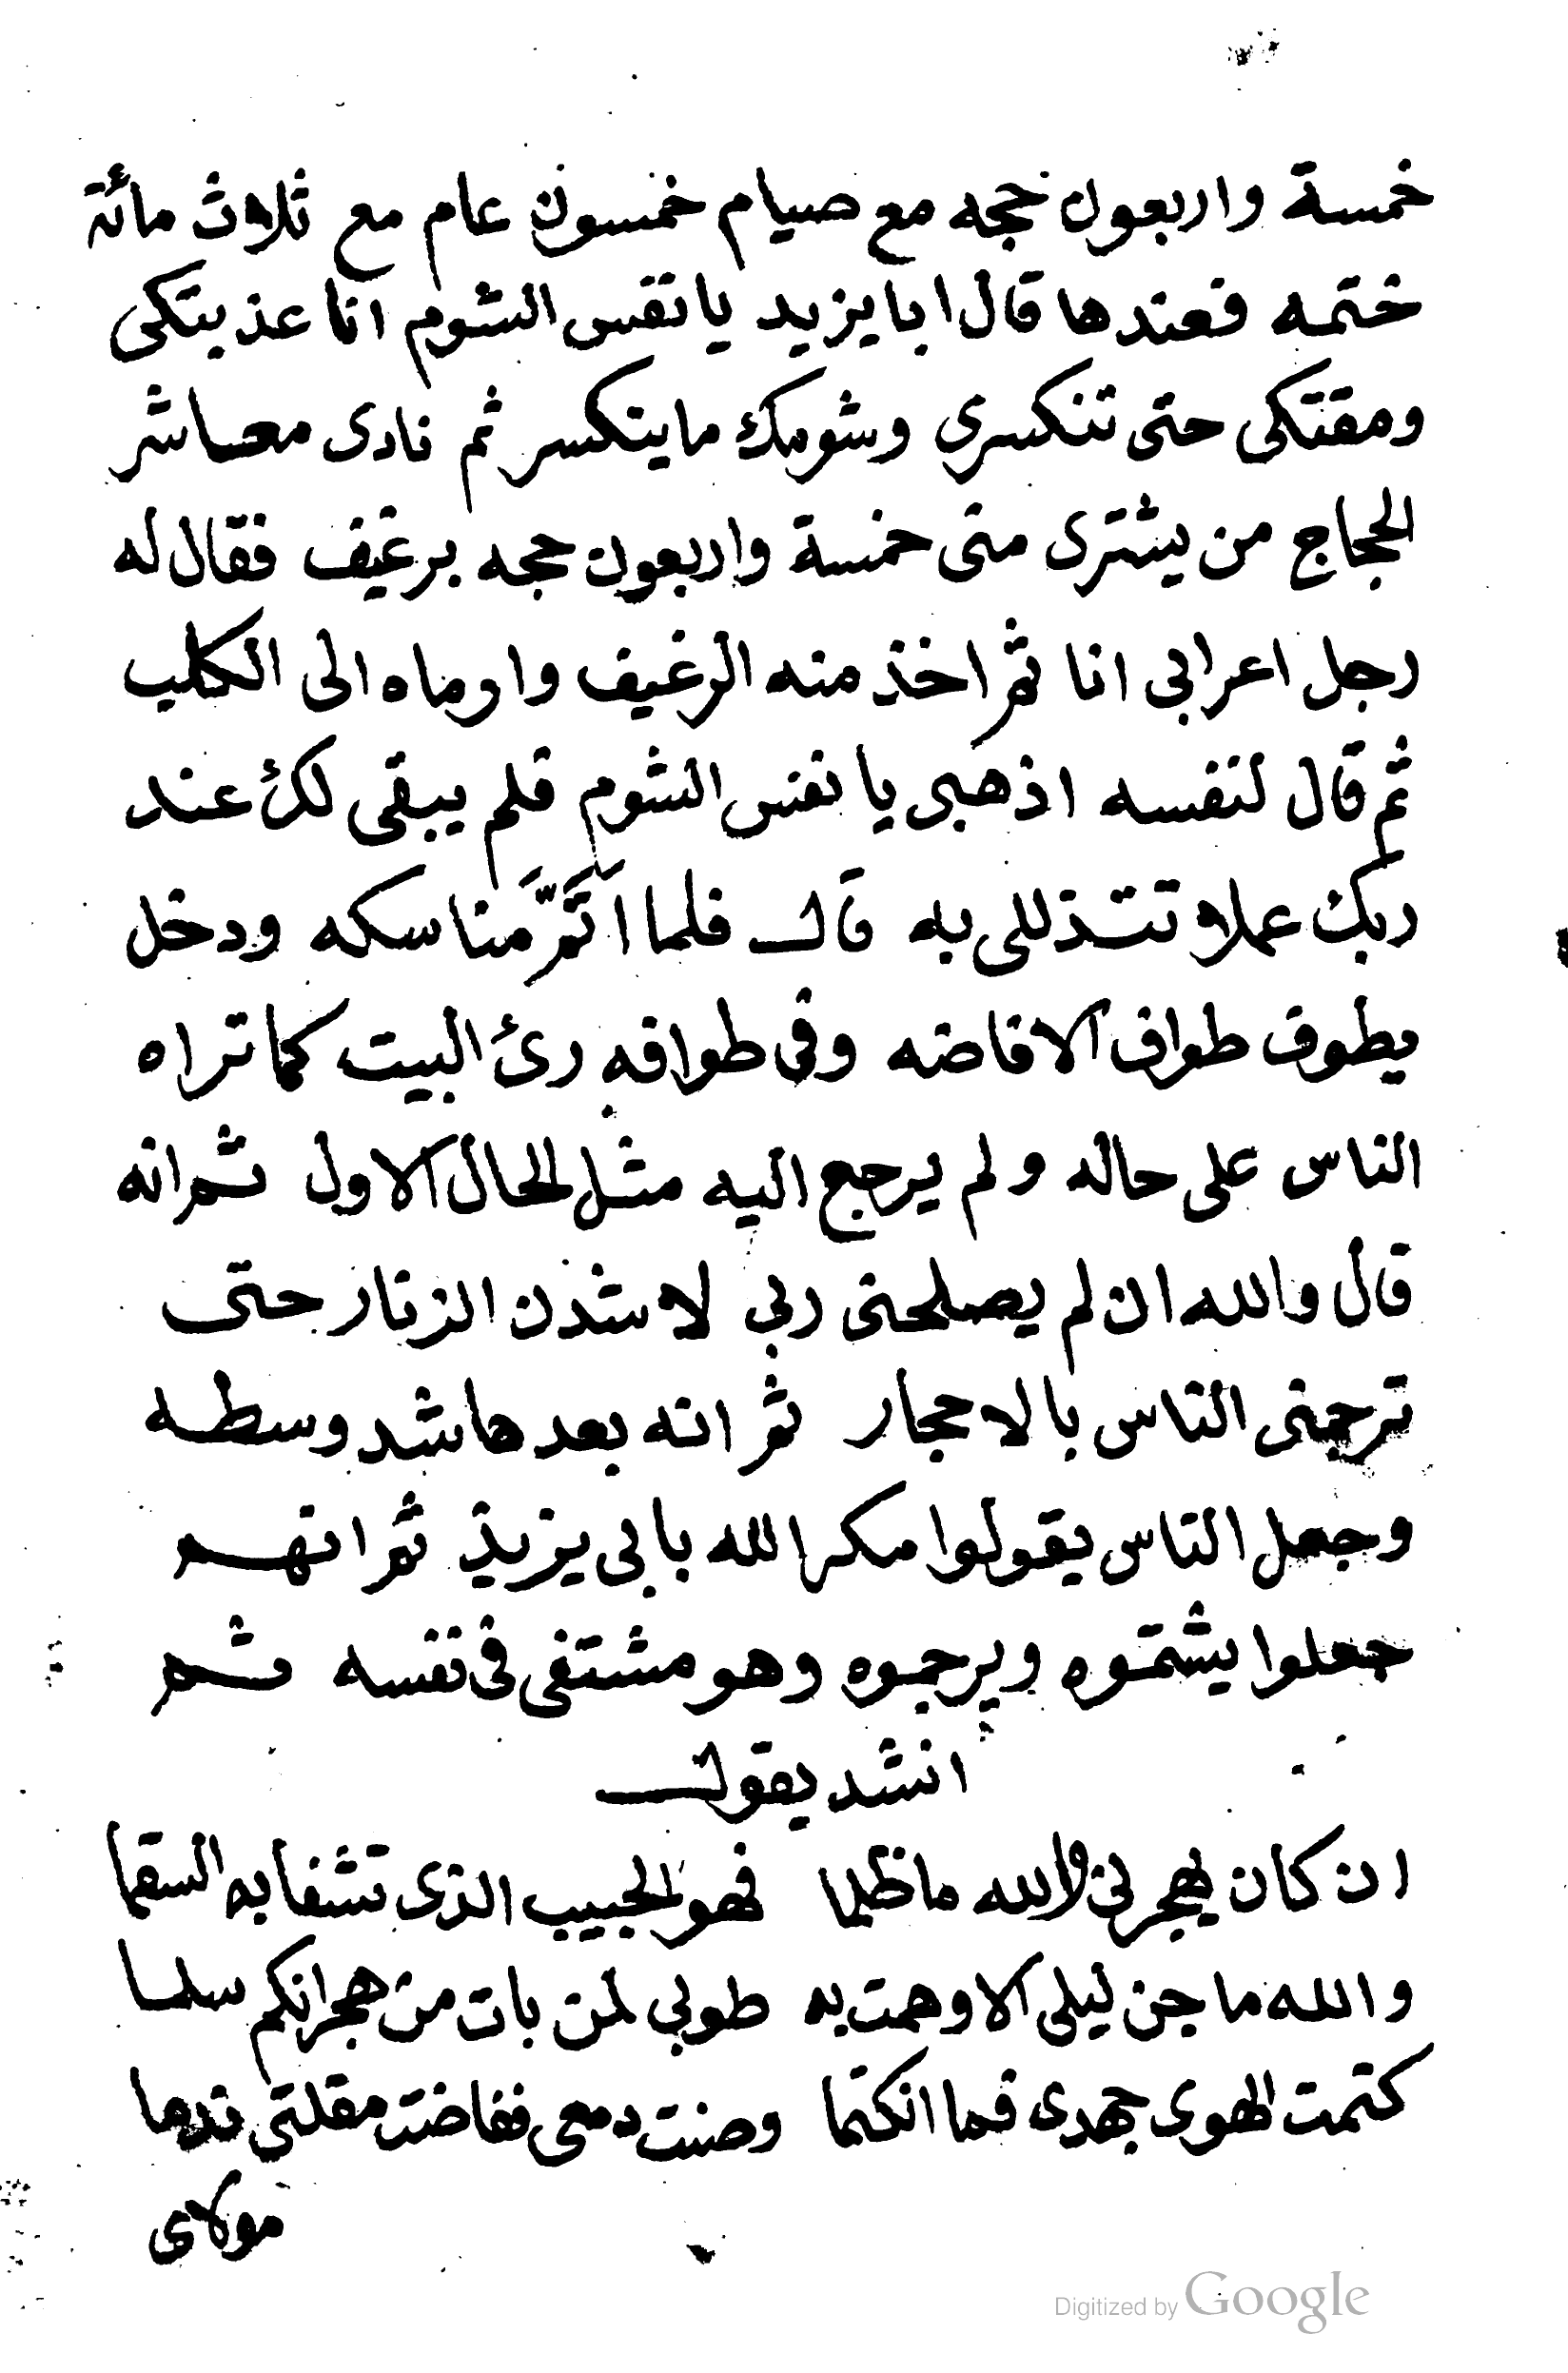 خمسة واربعون حجه مع صيام خمسون عام مع ثلاث مائة
ختمه فعندها قال ابا يزيد يا نفس الشوم انا عذبتكى
ومقتكى حتى تنكسري وشومك ما ينكسر ثم نادى معاشر
الحجاج من يشترى منى خمسة واربعون حجه برغيف فقال له
رجل اعرابى انا ثم اخذ منه الرغيف وارماه الى الكليب
ثم قال لنفسه اذهبى يا نفس الشوم فلم يبقى لك عند
ربك عملا تتذللى به قال فلما اتم مناسكه ودخل
يطوف طواف الافاضه وفى طوافه رئ البيت كما تراه
الناس على حاله ولم يرجع اليه مثل الحال الاول ثم انه
قال والله ان لم يصلحنى ربى لاشدن الزنار حتى
ترجمنى الناس بالاحجار ثم انه بعدها شد وسطه
وجعل الناس يقولوا مكر الله بابى يزيد ثم انهم
جعلوا يشتموه ويرجموه وهو مشتفى فى نفسه ثم
انشد يقول
ان كان يهجرنى والله ما ظلما فهو الحبيب الذى تشفا به السقما
والله ما جن ليلى الا وهمت به طوبى لمن بات من هجرانكم سلما
كتمت الهوى جهدى فما انكتما وصنت دمعى ففاضت مقلتى ندما
مولاى
Digitized by Google